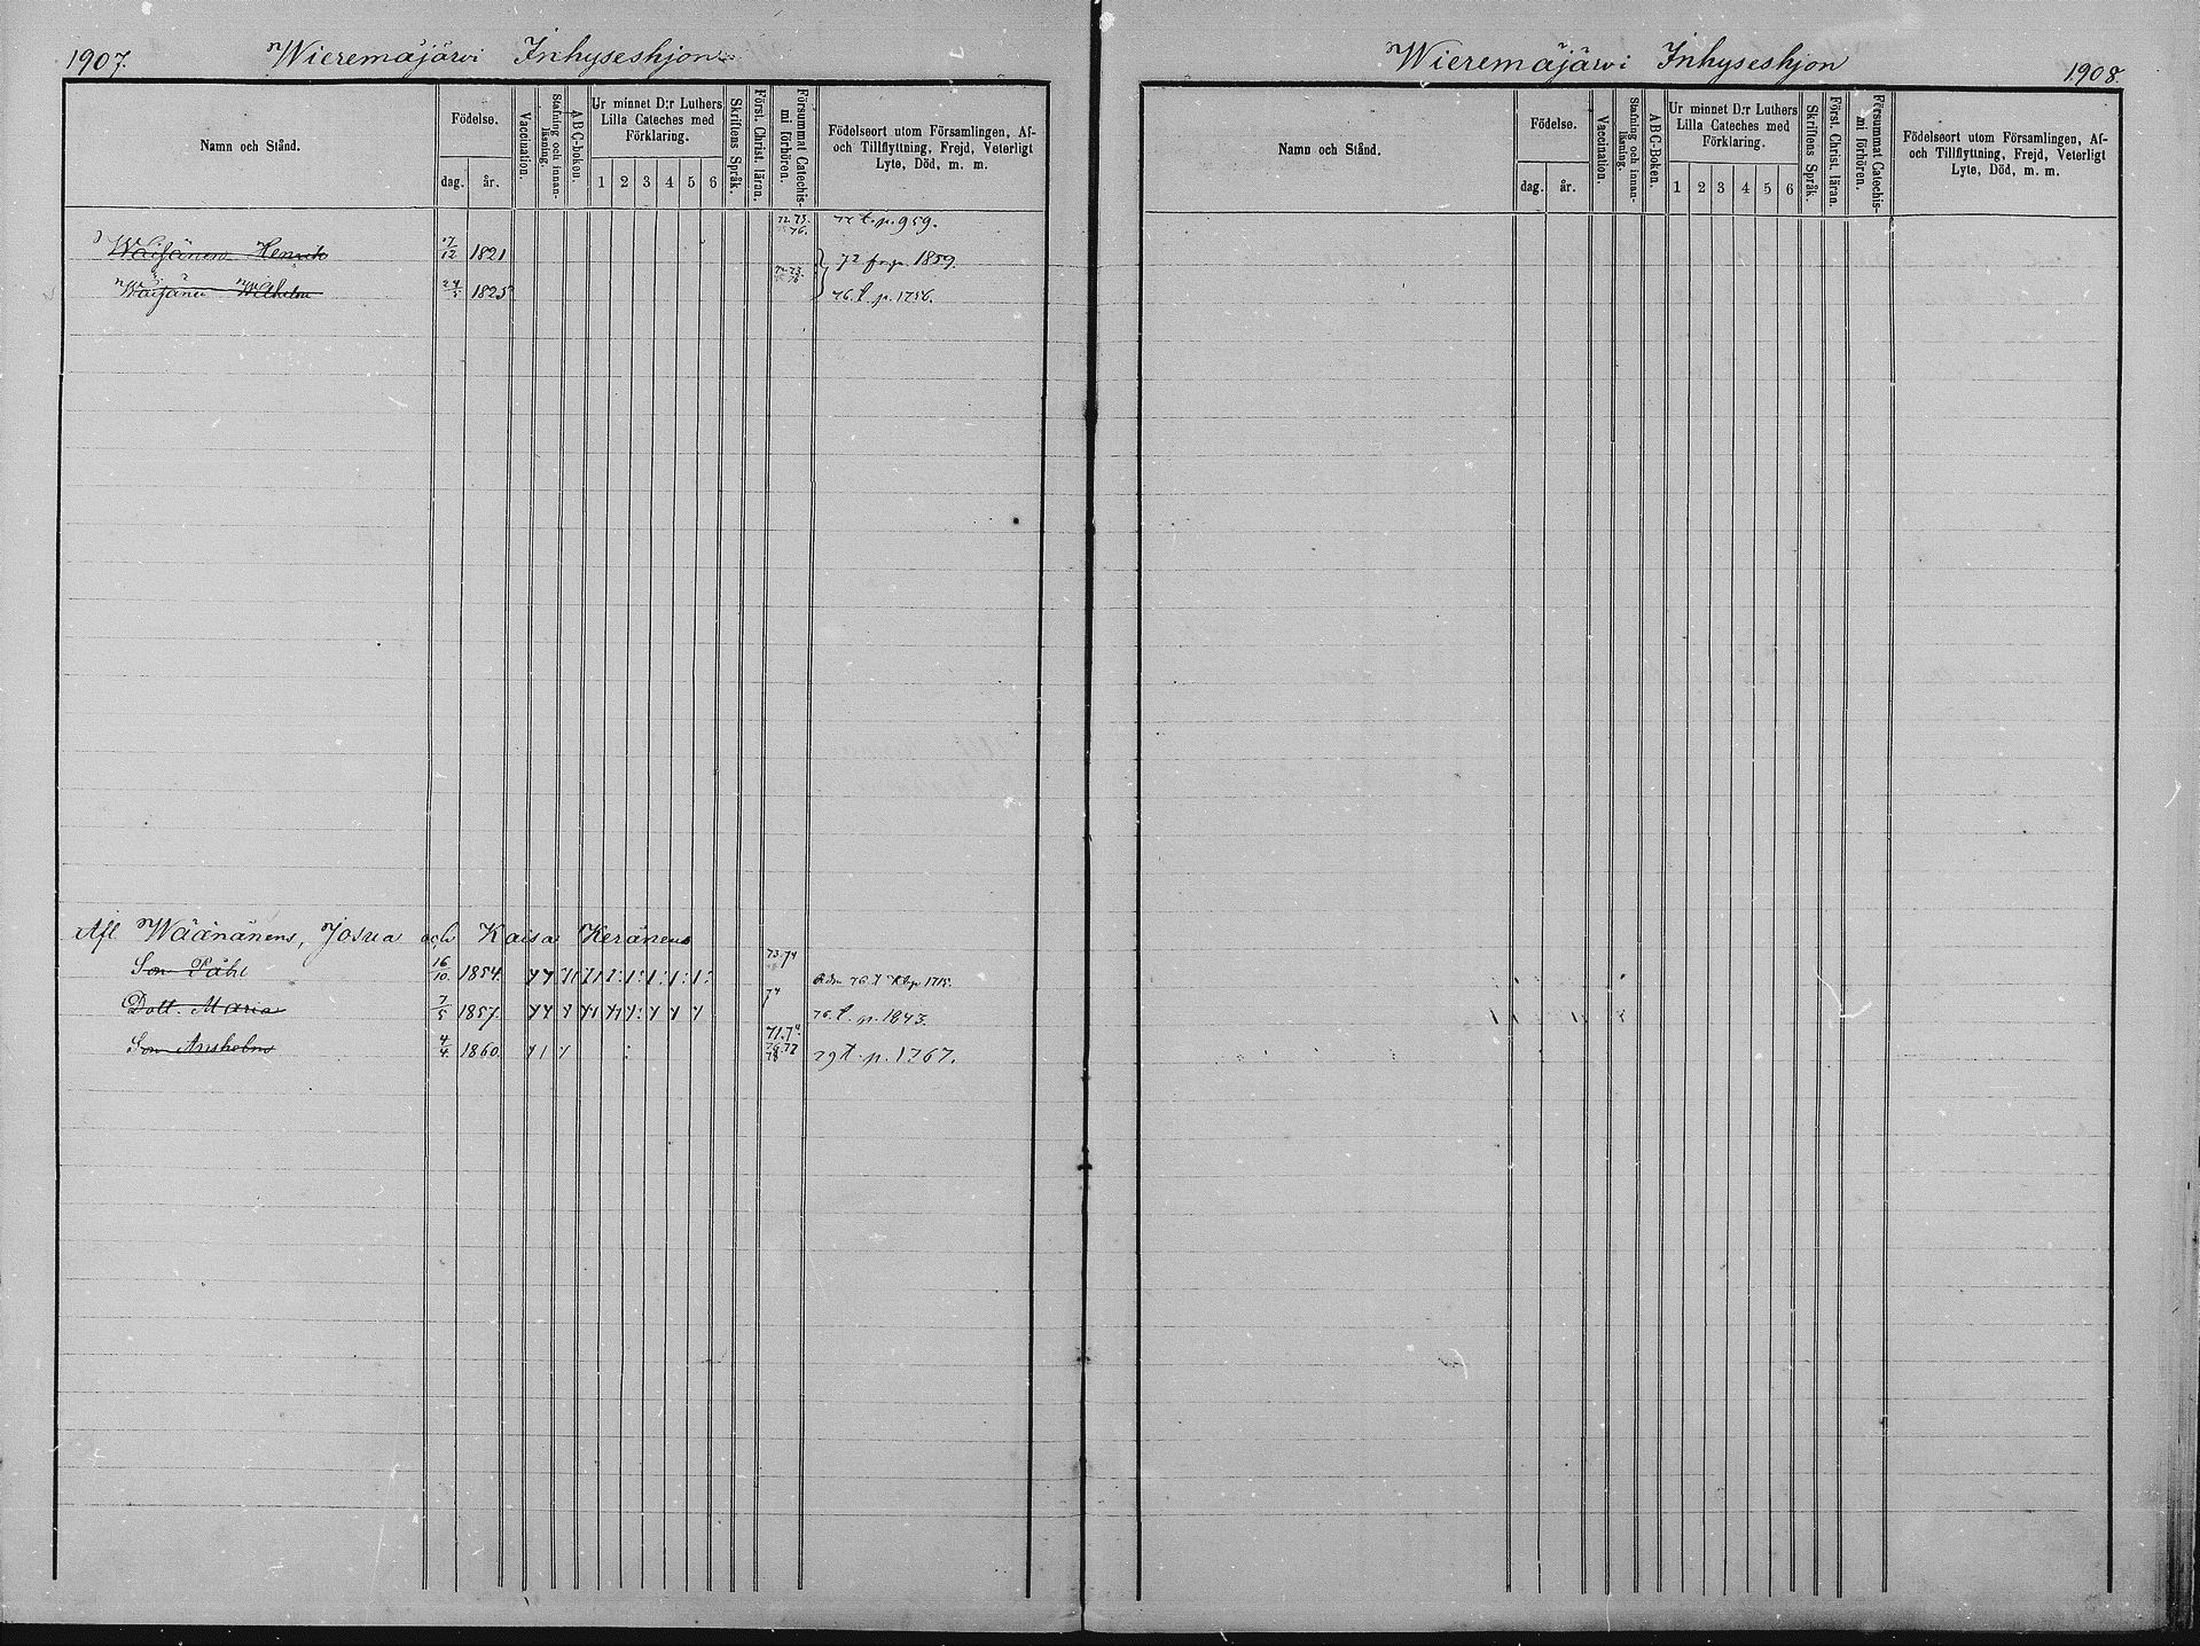 1907. Wieremäjärvi Inhyseshjon
Namn och Stånd.
Födelse.
dag. år.
Vaccination.
Stafning och innanläsning.
ABC-boken.
Ur minnet D:r Luthers Lilla Cateches med Förklaring.
1 2 3 4 5 6
Skriftens Språk.
Först. Christ. läran.
Försummat Catechismi förhören.
Födelseort utom Församlingen, Af- och Tillflyttning, Frejd, Veterligt Lyte, Död, m. m.
72. 73. 76. 72 t. p. 959.
Wäisänen Henrik 17/12 1821 72 fr. p. 1859.
Wäisänen Wilhelm 24/5 1825 76. t. p. 1756.
Afl. Wäänänens, Josua och Kaisa Keränens
Son Påhl 16/10. 1854. 73. 74 76. t. p. 1715.
Dott. Maria 7/5 1857. 74 76. t. p. 1843.
Son Anshelm 4/4. 1860. 71. 74. 76. 77 78 79 t. p. 1767.
Wieremäjärvi Inhyseshjon 1908.
Namn och Stånd.
Födelse.
dag. år.
Vaccination.
Stafning och innanläsning.
ABC-Boken.
Ur minnet D:r Luthers Lilla Cateches med Förklaring.
1 2 3 4 5 6
Skriftens Språk.
Först. Christ. läran.
Försummat Catechismi förhören.
Födelseort utom Församlingen, Af- och Tillflyttning, Frejd, Veterligt Lyte, Död, m. m.